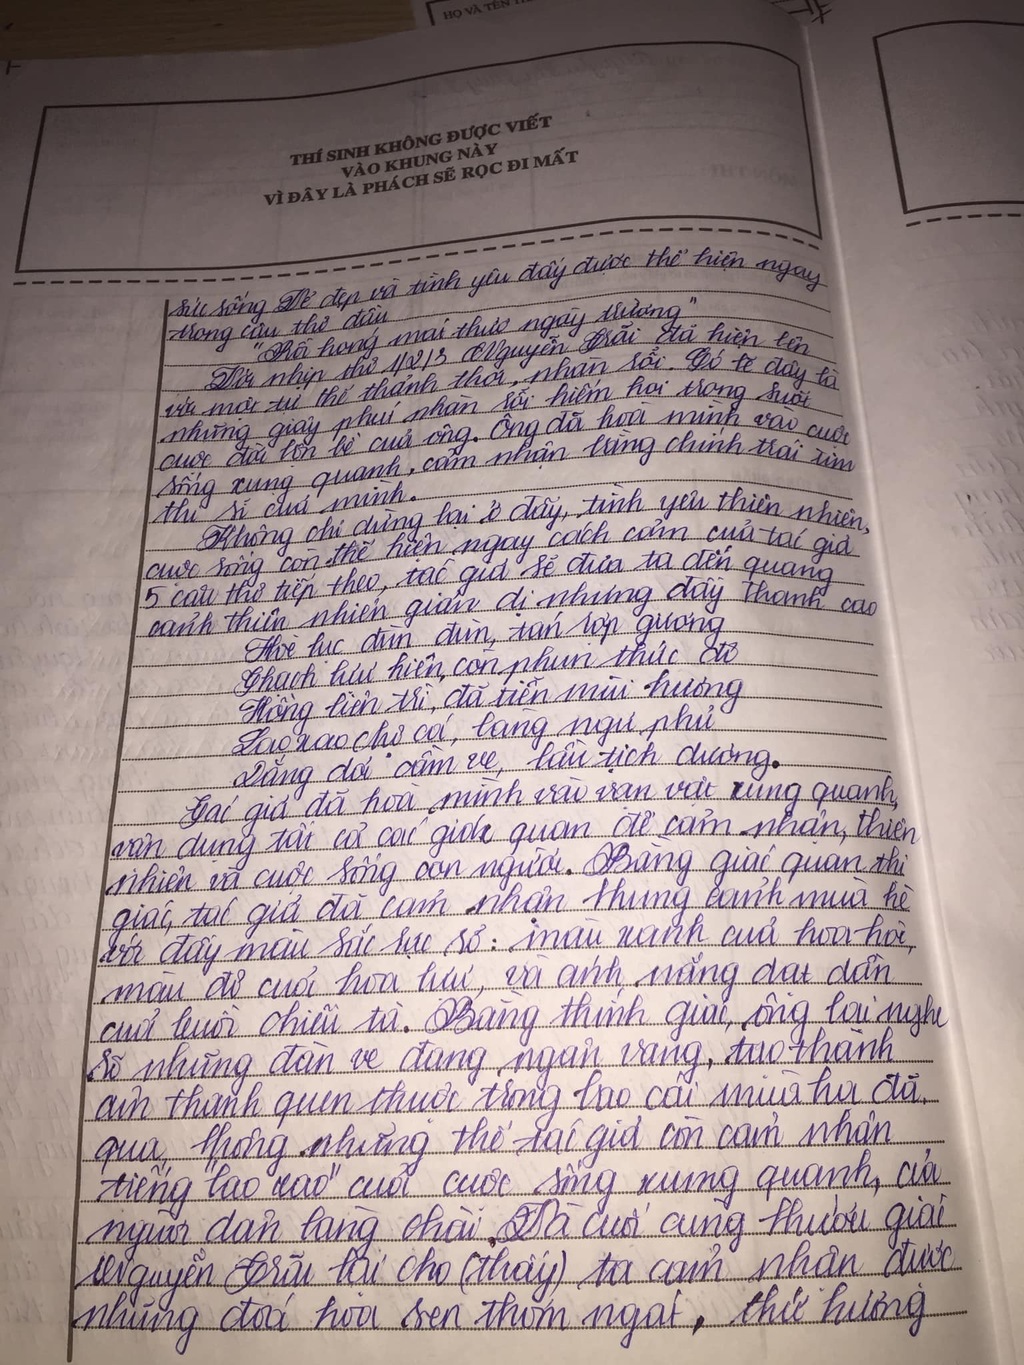 HỌ VÀ TÊN
THÍ SINH KHÔNG ĐƯỢC VIẾT
VÀO KHUNG NÀY
VÌ ĐÂY LÀ PHÁCH SẼ RỌC ĐI MẤT
sức sống Vẻ đẹp và tình yêu đấy được thể hiện ngay
trong câu thơ đầu
"Rồi hóng mát thuở ngày trường"
Với nhịp thơ 1/2/3 Nguyễn Trãi đã hiện lên
với một tư thế thảnh thơi, nhàn rỗi. Có lẽ đây là
những giây phút nhàn rỗi hiếm hoi trong suốt
cuộc đời bộn bề của ông. Ông đã hoà mình vào cuộc
sống xung quanh, cảm nhận bằng chính trái tim
thi sĩ của mình.
Không chỉ dừng lại ở đấy, tình yêu thiên nhiên,
cuộc sống còn thể hiện ngay cách cảm của tác giả
5 câu thơ tiếp theo, tác giả sẽ đưa ta đến quang
cảnh thiên nhiên giản dị nhưng đầy thanh cao
Hoè lục đùn đùn, tán rợp giương
Thạch lựu hiên, còn phun thức đỏ
Hồng liên trì, đã tiễn mùi hương
Lao xao chợ cá, làng ngư phủ
Dắng dỏi cầm ve, lầu tịch dương.
Tác giả đã hoà mình vào vạn vật xung quanh,
vận dụng tất cả các giác quan để cảm nhận, thiên
nhiên và cuộc sống con người. Bằng giác quan thị
giác, tác giả đã cảm nhận khung cảnh mùa hè
với đầy màu sắc sực sỡ: màu xanh cuả hoa hoè,
màu đỏ cuả hoa lựu, và ánh nắng dạt dần
cuả buổi chiều tà. Bằng thính giác, ông lại nghe
rõ những đàn ve đang ngân vang, tạo thành
âm thanh quen thuộc trong bao cái mùa hạ đã
qua, không những thế tác giả còn cảm nhận
tiếng "lao xao" cuả cuộc sống xung quanh, của
người dân làng chài. Và cuối cùng khướu giác
Nguyễn Trãi lại cho (thấy) ta cảm nhận được
những đoá hoa sen thơm ngát, thứ hương